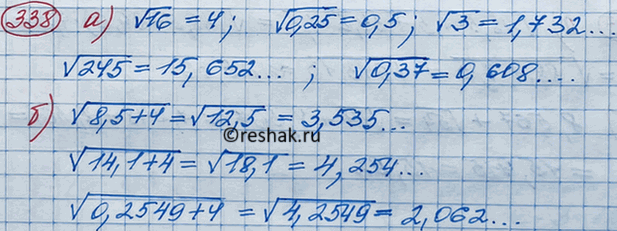 338 а) √16 = 4; √0,25 = 0,5; √3 = 1,732...
√245 = 15,652...; √0,37 = 0,608....
б) √8,5+4 = √12,5 = 3,535...
©reshak.ru
√14,1+4 = √18,1 = 4,254...
√0,2549+4 = √4,2549 = 2,062...